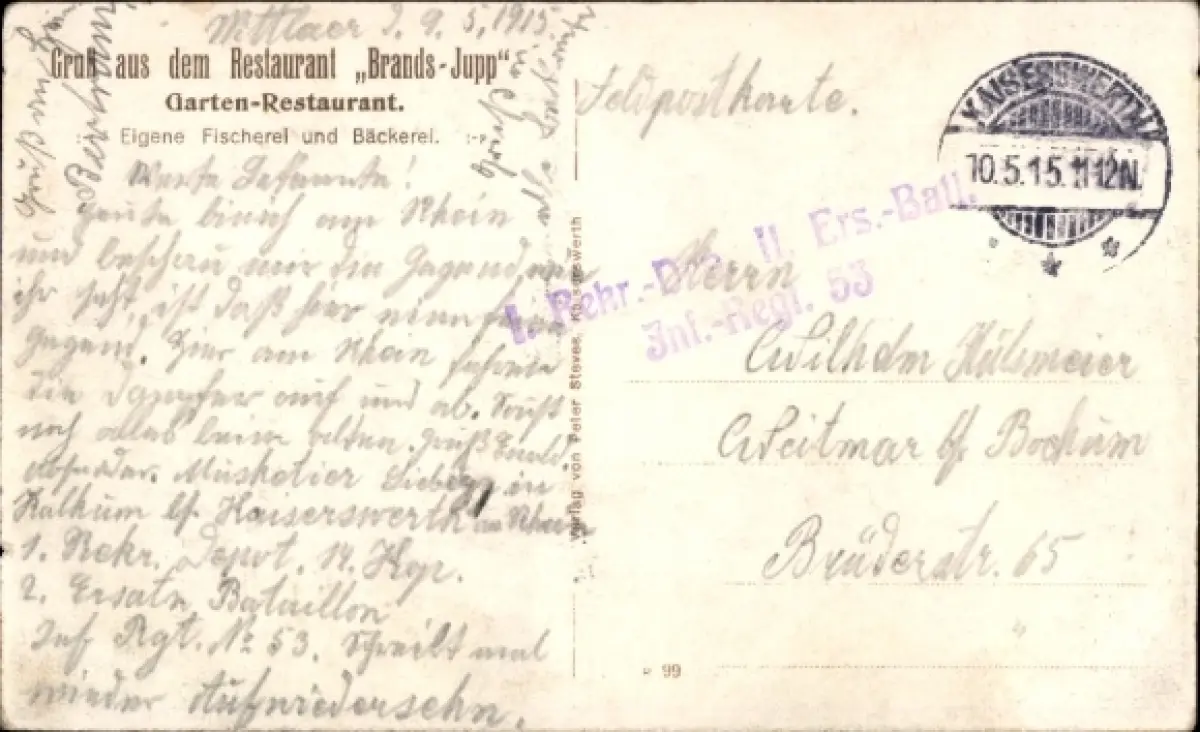 Wittlaer d. 9.5.1915.
Gruß aus dem Restaurant „Brands-Jupp“
Garten-Restaurant.
Eigene Fischerei und Bäckerei.
Werte Bekannte!
Heute bin ich am Rhein
und beschau mir die Gegend
ihr seht, ist daß hier eine
Gegend. Hier am Rhein fahren
die Dampfer auf und ab. Sonst
noch alles beim alten. Gruß
Absender. Musketier in
Kalkum bf. Kaiserswerth am Rhein
1. Rekr. Depot. 14. Kop.
2. Ersatz Bataillon
Inf Rgt. No 53. Schreibt mal
wieder Aufwiedersehn.
Feldpostkarte.
KAISERSWERTH
10.5.15.11-12N.
I. Rekr.-Dep. II. Ers.-Batl.
Inf.-Regt. 53
Herrn
Wilhelm Hülsmeier
Weitmar bf. Bochum
Brüderstr. 65
Verlag von Peter Steves, Kaiserswerth
99